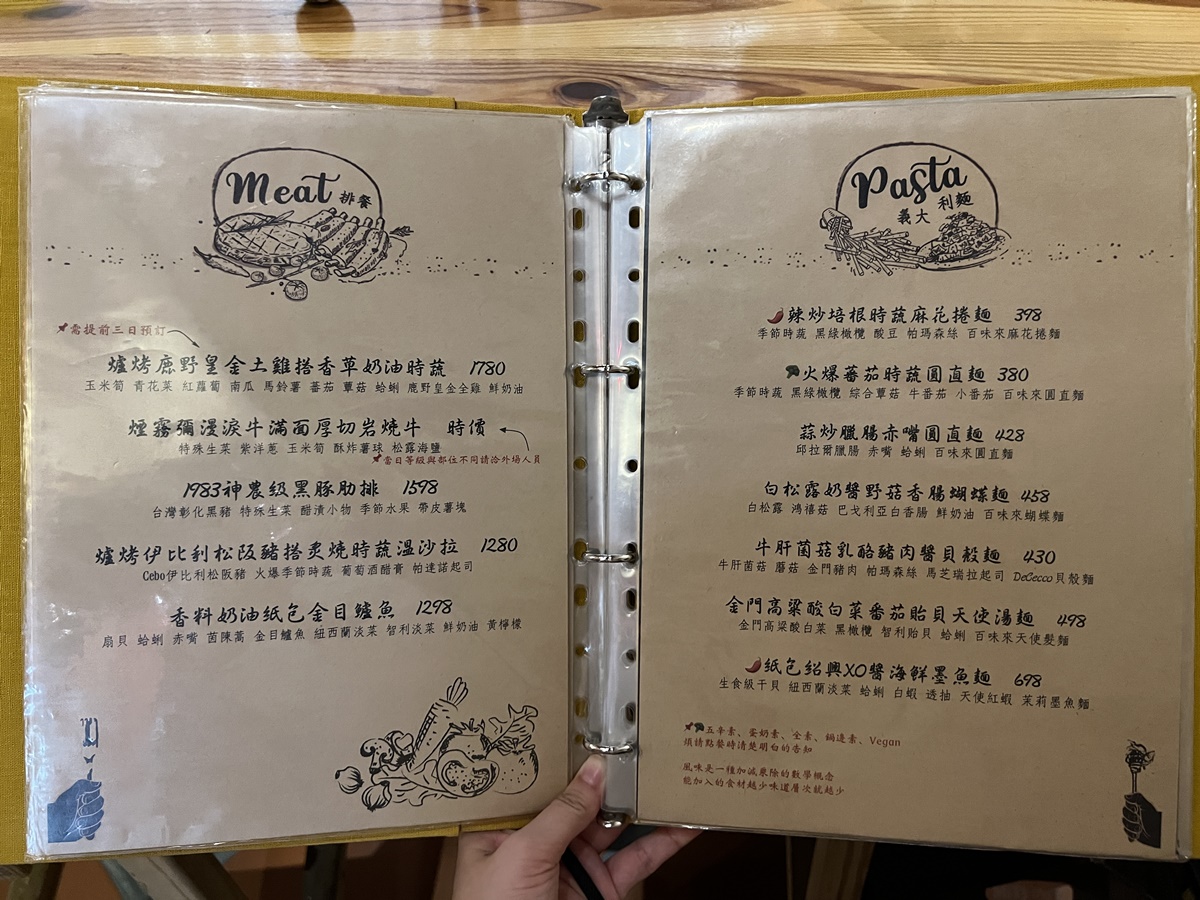 Meat 排餐
需提前三日預訂
爐烤鹿野皇金土雞搭香草奶油時蔬 1780
玉米筍 青花菜 紅蘿蔔 南瓜 馬鈴薯 蕃茄 蕈菇 蛤蜊 鹿野皇金全雞 鮮奶油
煙霧彌漫淚牛滿面厚切岩燒牛 時價
特殊生菜 紫洋蔥 玉米筍 酥炸薯球 松露海鹽
當日等級與部位不同請洽外場人員
1983神農级黑豚肋排 1598
台灣彰化黑豬 特殊生菜 醋漬小物 季節水果 帶皮薯塊
爐烤伊比利松阪豬搭炙燒時蔬溫沙拉 1280
Cebo伊比利松阪豬 火爆季節時蔬 葡萄酒醋膏 帕達諾起司
香料奶油纸包金目鱸魚 1298
扇貝 蛤蜊 赤嘴 茵陳蒿 金目鱸魚 紐西蘭淡菜 智利淡菜 鮮奶油 黃檸檬
Pasta 義大利麵
辣炒培根時蔬麻花捲麵 398
季節時蔬 黑綠橄欖 酸豆 帕瑪森絲 百味來麻花捲麵
火爆蕃茄時蔬圓直麵 380
季節時蔬 黑綠橄欖 綜合蕈菇 牛番茄 小番茄 百味來圓直麵
蒜炒臘腸赤嘴圓直麵 428
邱拉爾臘腸 赤嘴 蛤蜊 百味來圓直麵
白松露奶醬野菇香腸蝴蝶麵 458
白松露 鴻禧菇 巴戈利亞白香腸 鮮奶油 百味來蝴蝶麵
牛肝菌菇乳酪豬肉醬貝殼麵 430
牛肝菌菇 蘑菇 金門豬肉 帕瑪森絲 馬芝瑞拉起司 DeCecco貝殼麵
金門高粱酸白菜番茄貽貝天使湯麵 498
金門高粱酸白菜 黑橄欖 智利貽貝 蛤蜊 百味來天使髮麵
纸包绍興XO醬海鮮墨魚麵 698
生食級干貝 紐西蘭淡菜 蛤蜊 白蝦 透抽 天使紅蝦 茉莉墨魚麵
五辛素、蛋奶素、全素、鍋邊素、Vegan
煩請點餐時清楚明白的告知
風味是一種加減乘除的數學概念
能加入的食材越少味道層次就越少